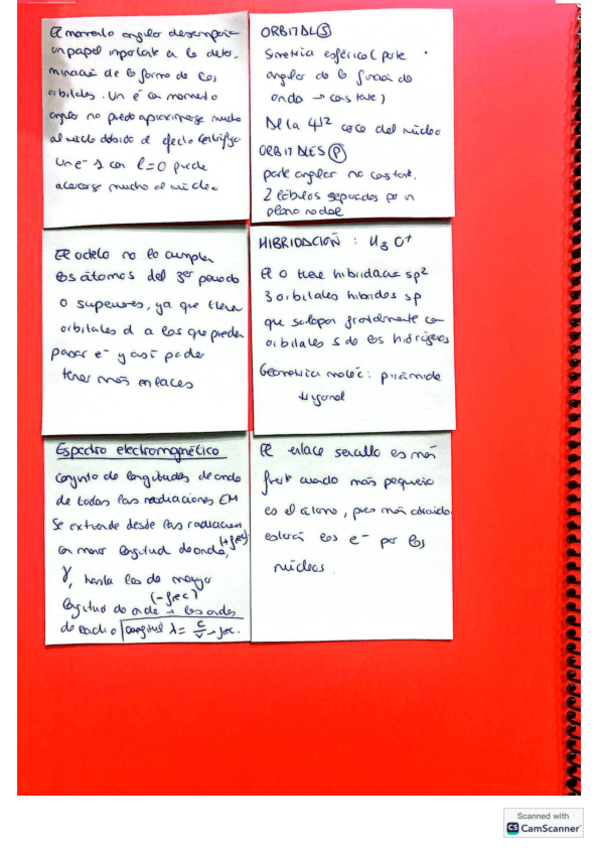 El momento angular desempeña
un papel importante en la deter-
minación de la forma de los
orbitales. Un e⁻ con momento
angular no puede aproximarse mucho
al núcleo debido al efecto centrífugo
Un e⁻ s con l=0 puede
acercarse mucho al núcleo
ORBITAL (S)
Simetría esférica (parte
angular de la función de
onda → constante)
De la 4π² cerca del núcleo
ORBITALES (P)
parte angular no constante.
2 lóbulos separados por un
plano nodal
El modelo no lo cumplen
los átomos del 3er periodo
o superiores, ya que tienen
orbitales d a los que pueden
pasar e⁻ y así poder
tener más enlaces
HIBRIDACIÓN : H₃O⁺
El O tiene hibridación sp²
3 orbitales híbridos sp
que solapan frontalmente con
orbitales s de los hidrógenos
Geometría moléc: pirámide
trigonal
Espectro electromagnético
conjunto de longitudes de onda
de todas las radiaciones EM
Se extiende desde las radiaciones
con menor longitud de onda, (+frec)
γ, hasta las de mayor
longitud de onda (-frec) → las ondas
de radio longitud λ = c/ν → frec.
El enlace sencillo es más
fuerte cuando más pequeño
es el átomo, pues más atraídos
estarán los e⁻ por los
núcleos.
Scanned with
CS CamScanner